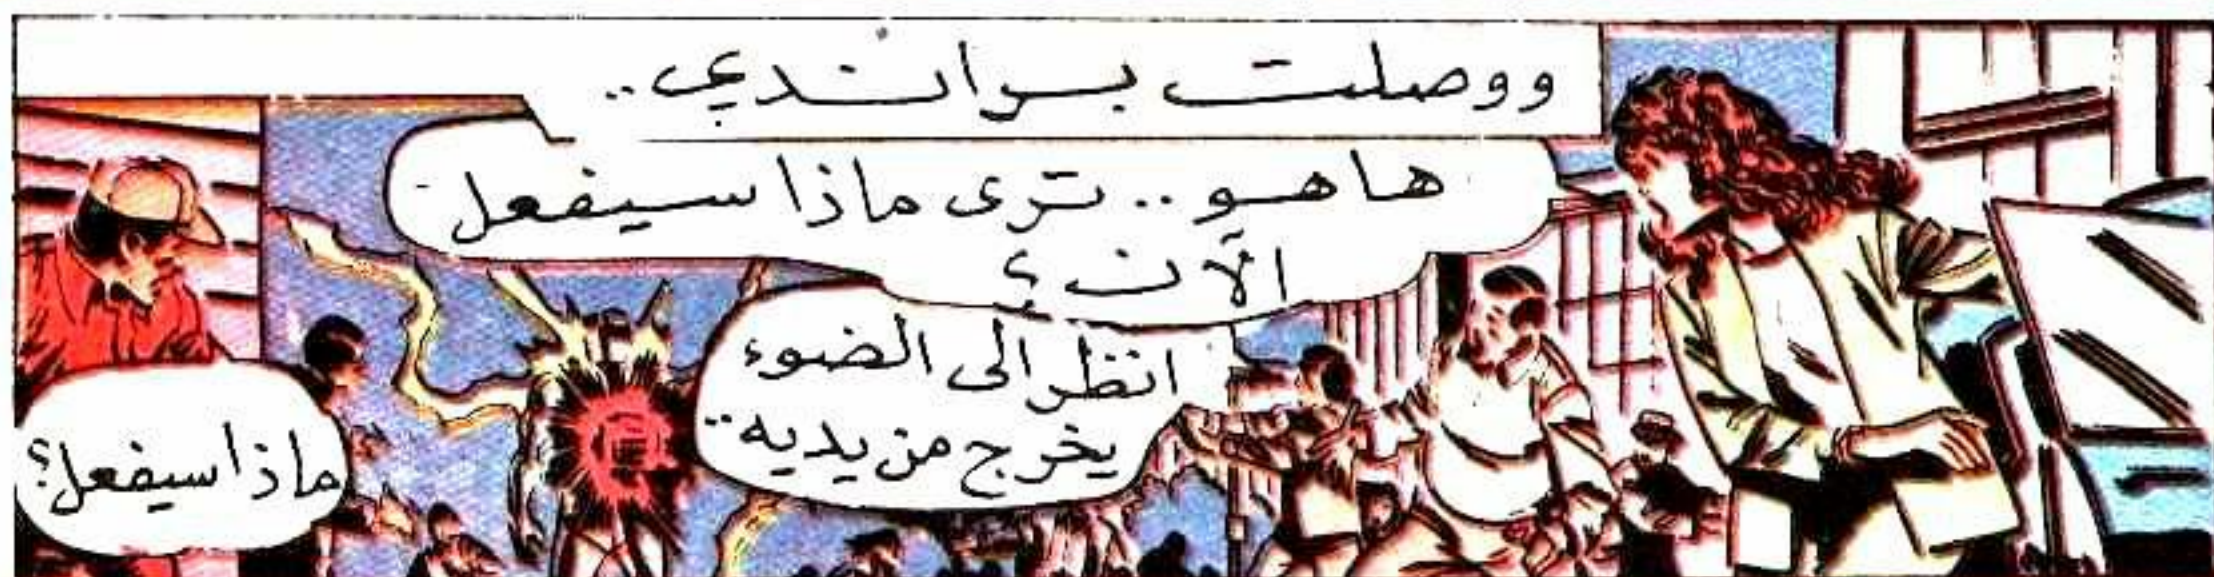 ووصلت براندي..
ها هو.. ترى ماذا سيفعل
الآن؟
انظر الى الضوء
يخرج من يديه..
ماذا سيفعل؟